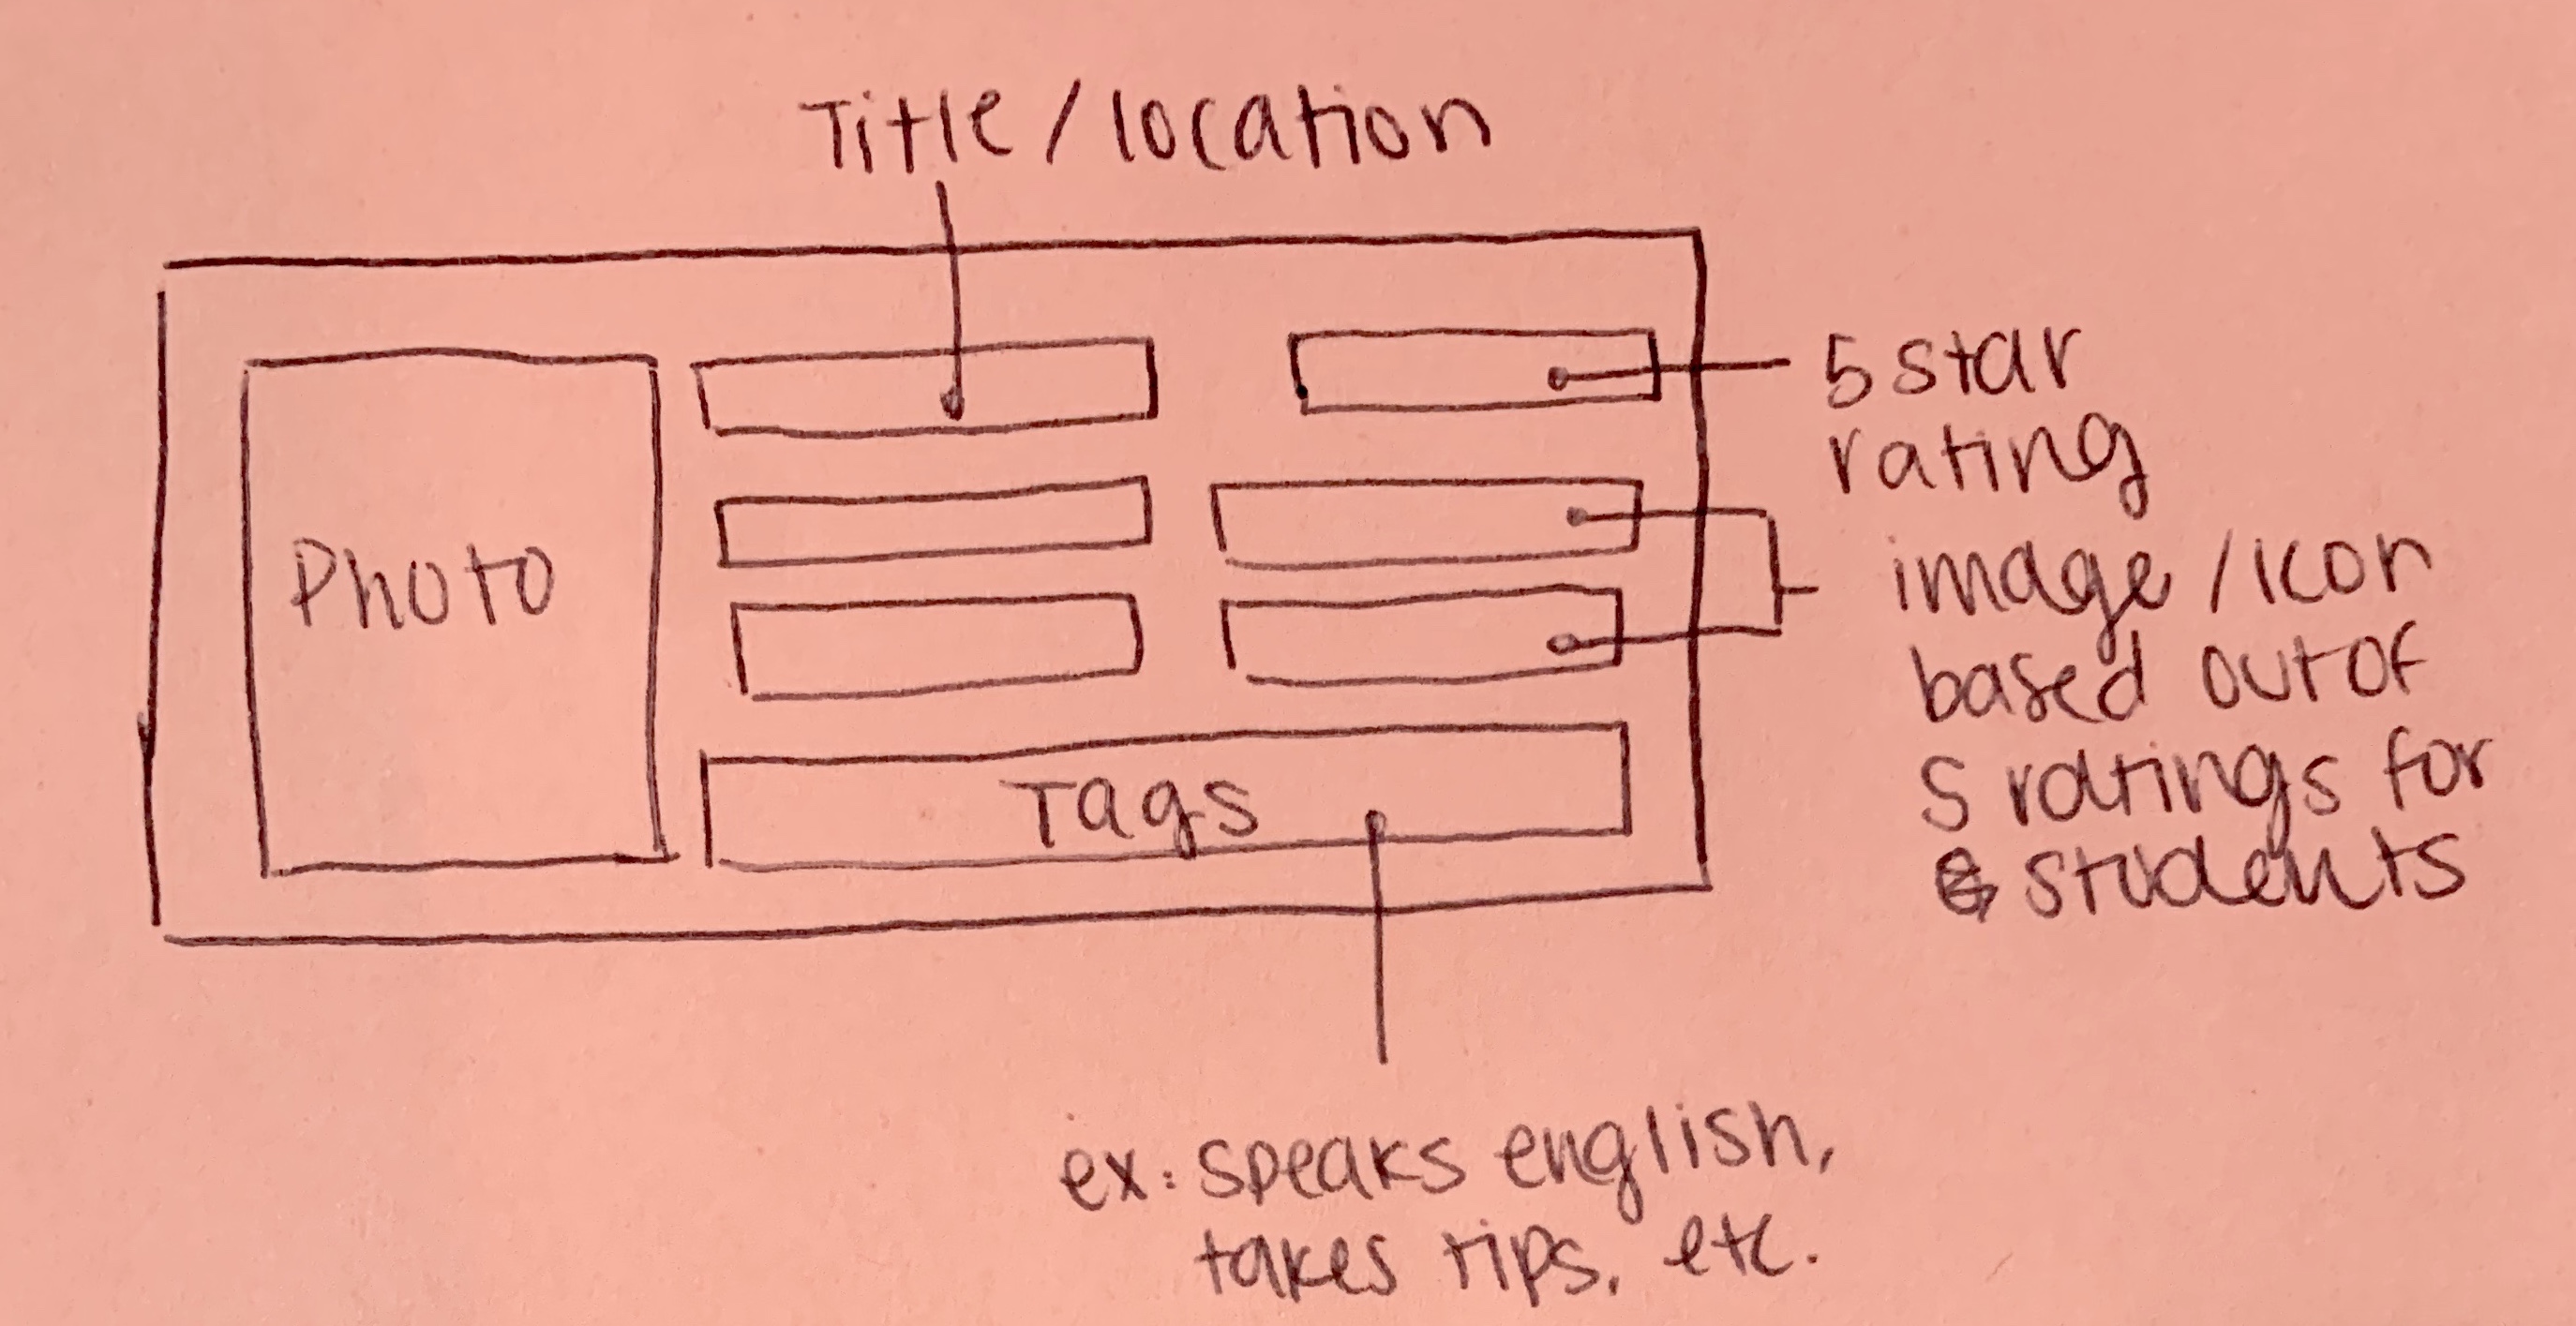 Title/location
5 star
rating
Photo
image/icon
based out of
5 ratings for
students
Tags
ex: speaks english,
takes tips, etc.